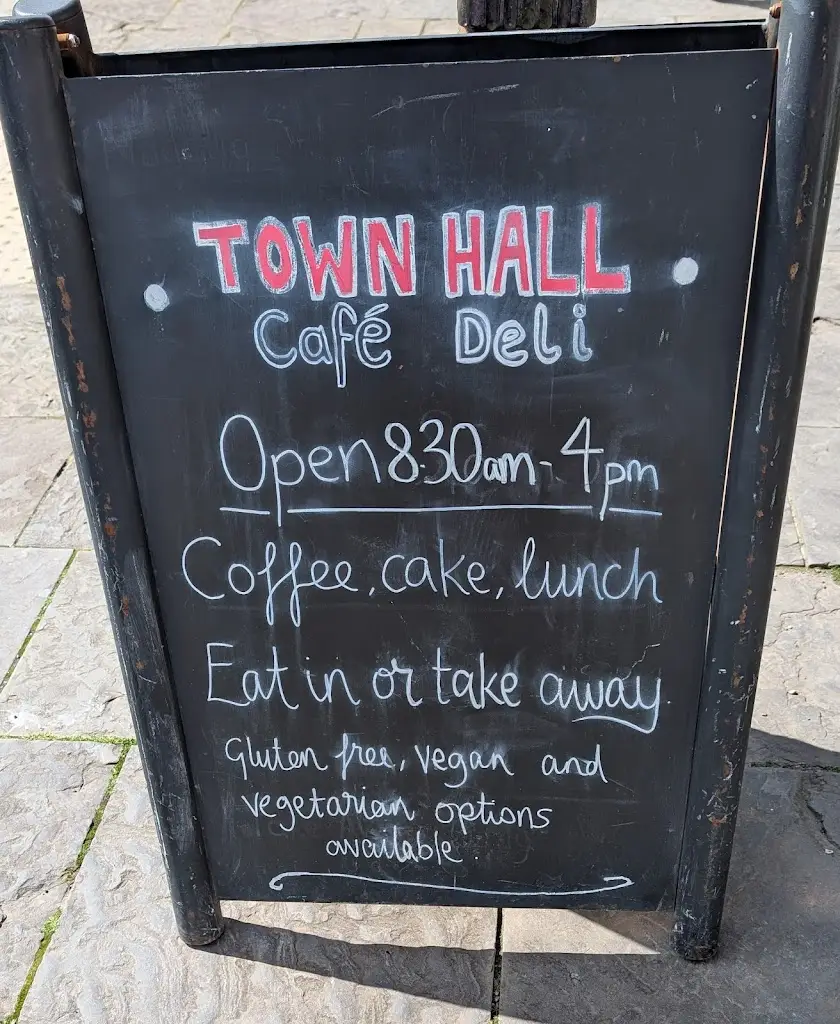 TOWN HALL
Café Deli
Open 8.30am - 4pm
Coffee, cake, lunch
Eat in or take away.
Gluten free, vegan and
vegetarian options
available.